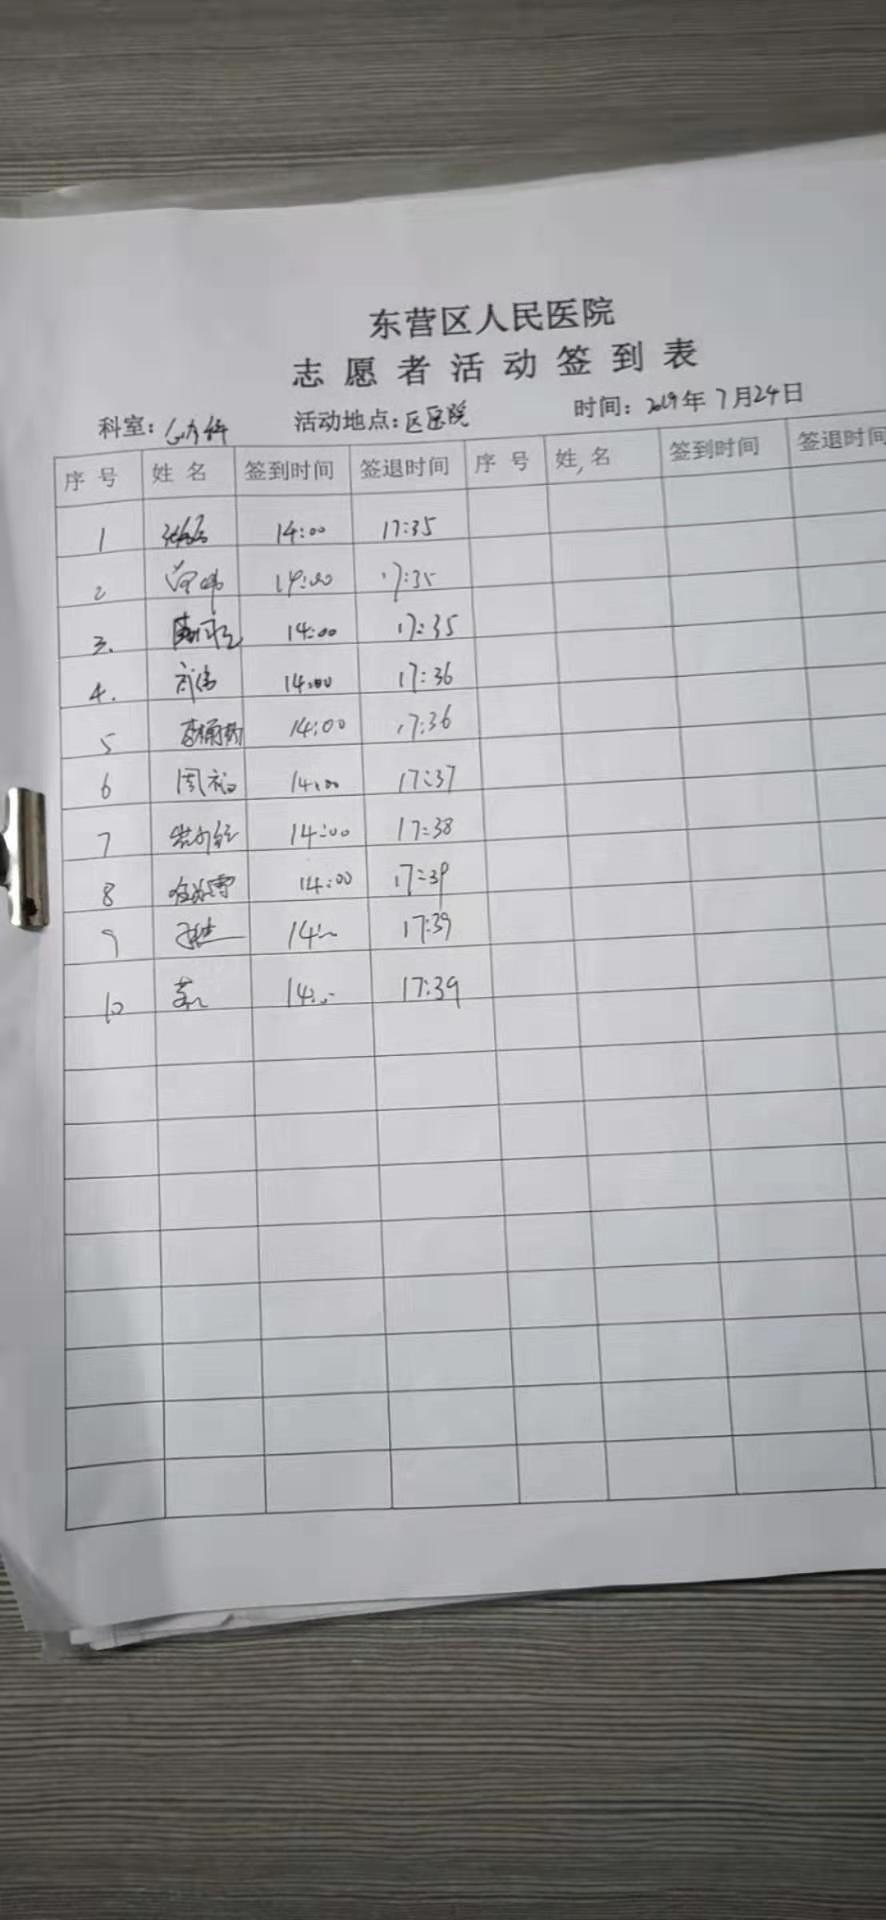 东营区人民医院
志愿者活动签到表
科室: 科 活动地点: 区医院 时间: 2019年7月24日
序号 姓名 签到时间 签退时间 序号 姓名 签到时间 签退时间
1 14:00 17:35
2 14:00 17:35
3. 14:00 17:35
4. 武伟 14:00 17:36
5 14:00 17:36
6 14:00 17:37
7 14:00 17:38
8 14:00 17:39
9 17:39
10 17:39